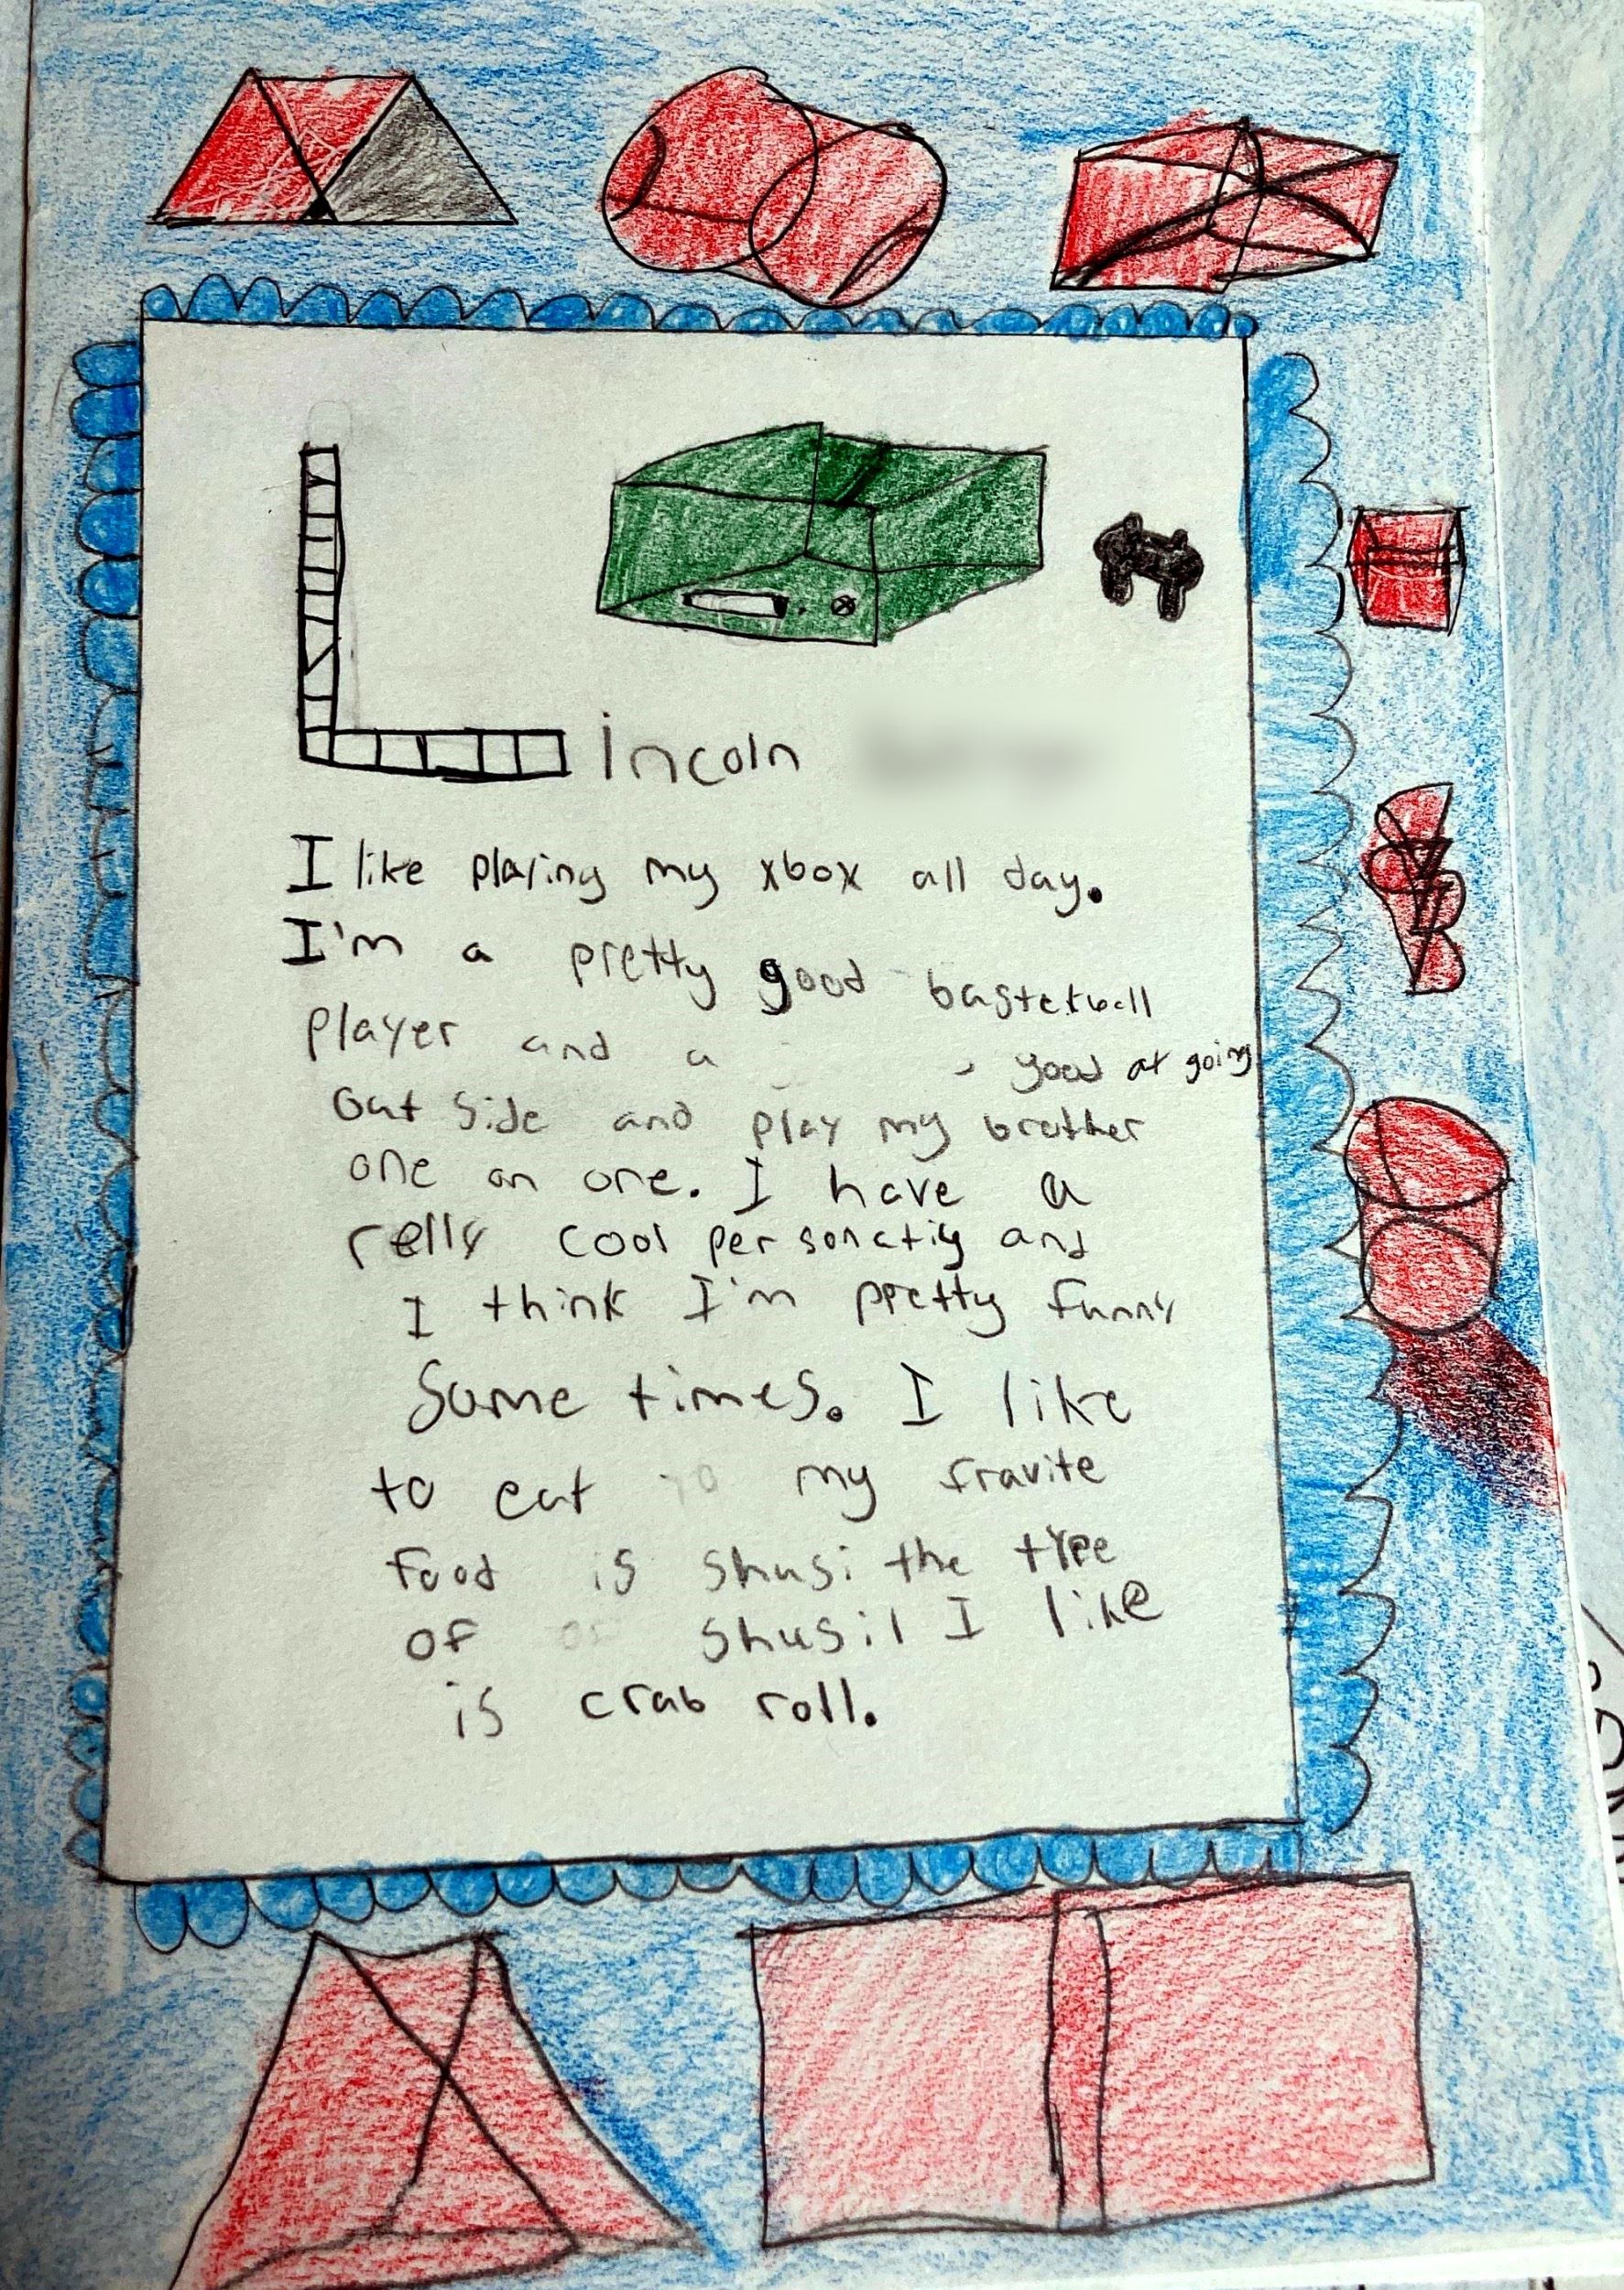 Lincoln
I like playing my xbox all day.
I'm a pretty good basteketball
player and a good at going
out side and play my brother
one on one. I have a
relly cool personatiy and
I think I'm pretty funny
Some times. I like
to eat my fravite
food is shusi the type
of shusil I like
is crab roll.